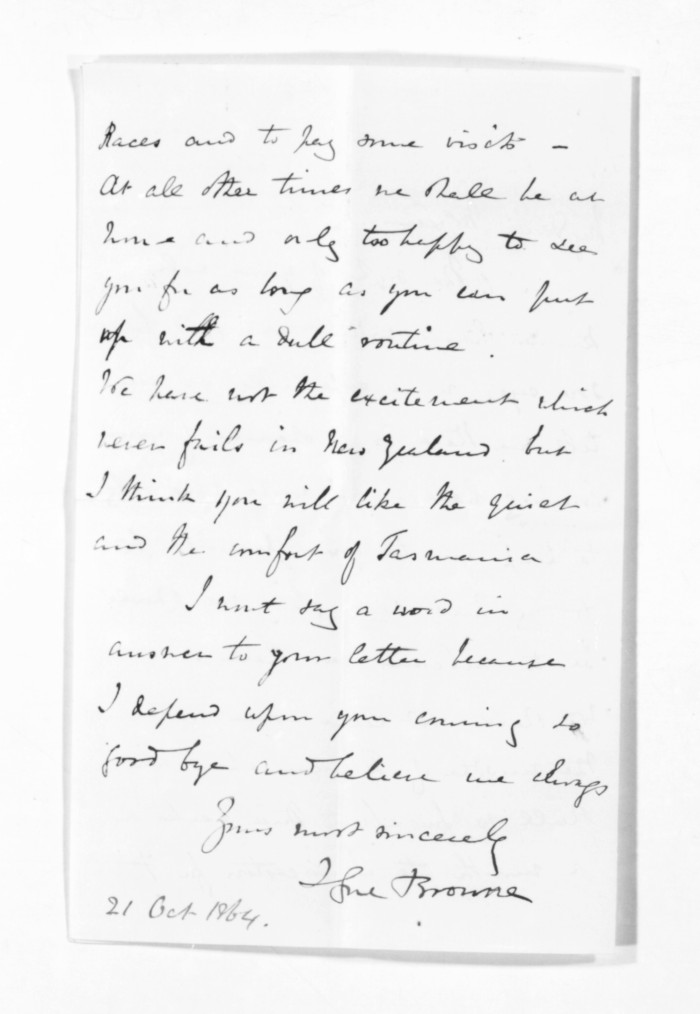 Races and to pay some visits –
At all other times we shall be at
home and only too happy to see
you for as long as you can put
up with a dull routine.
We have not the excitement which
never fails in New Zealand but
I think you will like the quiet
and the comfort of Tasmania
I wont say a word in
answer to your letter because
I depend upon your coming so
good bye and believe me always
Yours most sincerely
Gore Browne
21 Oct 1864.